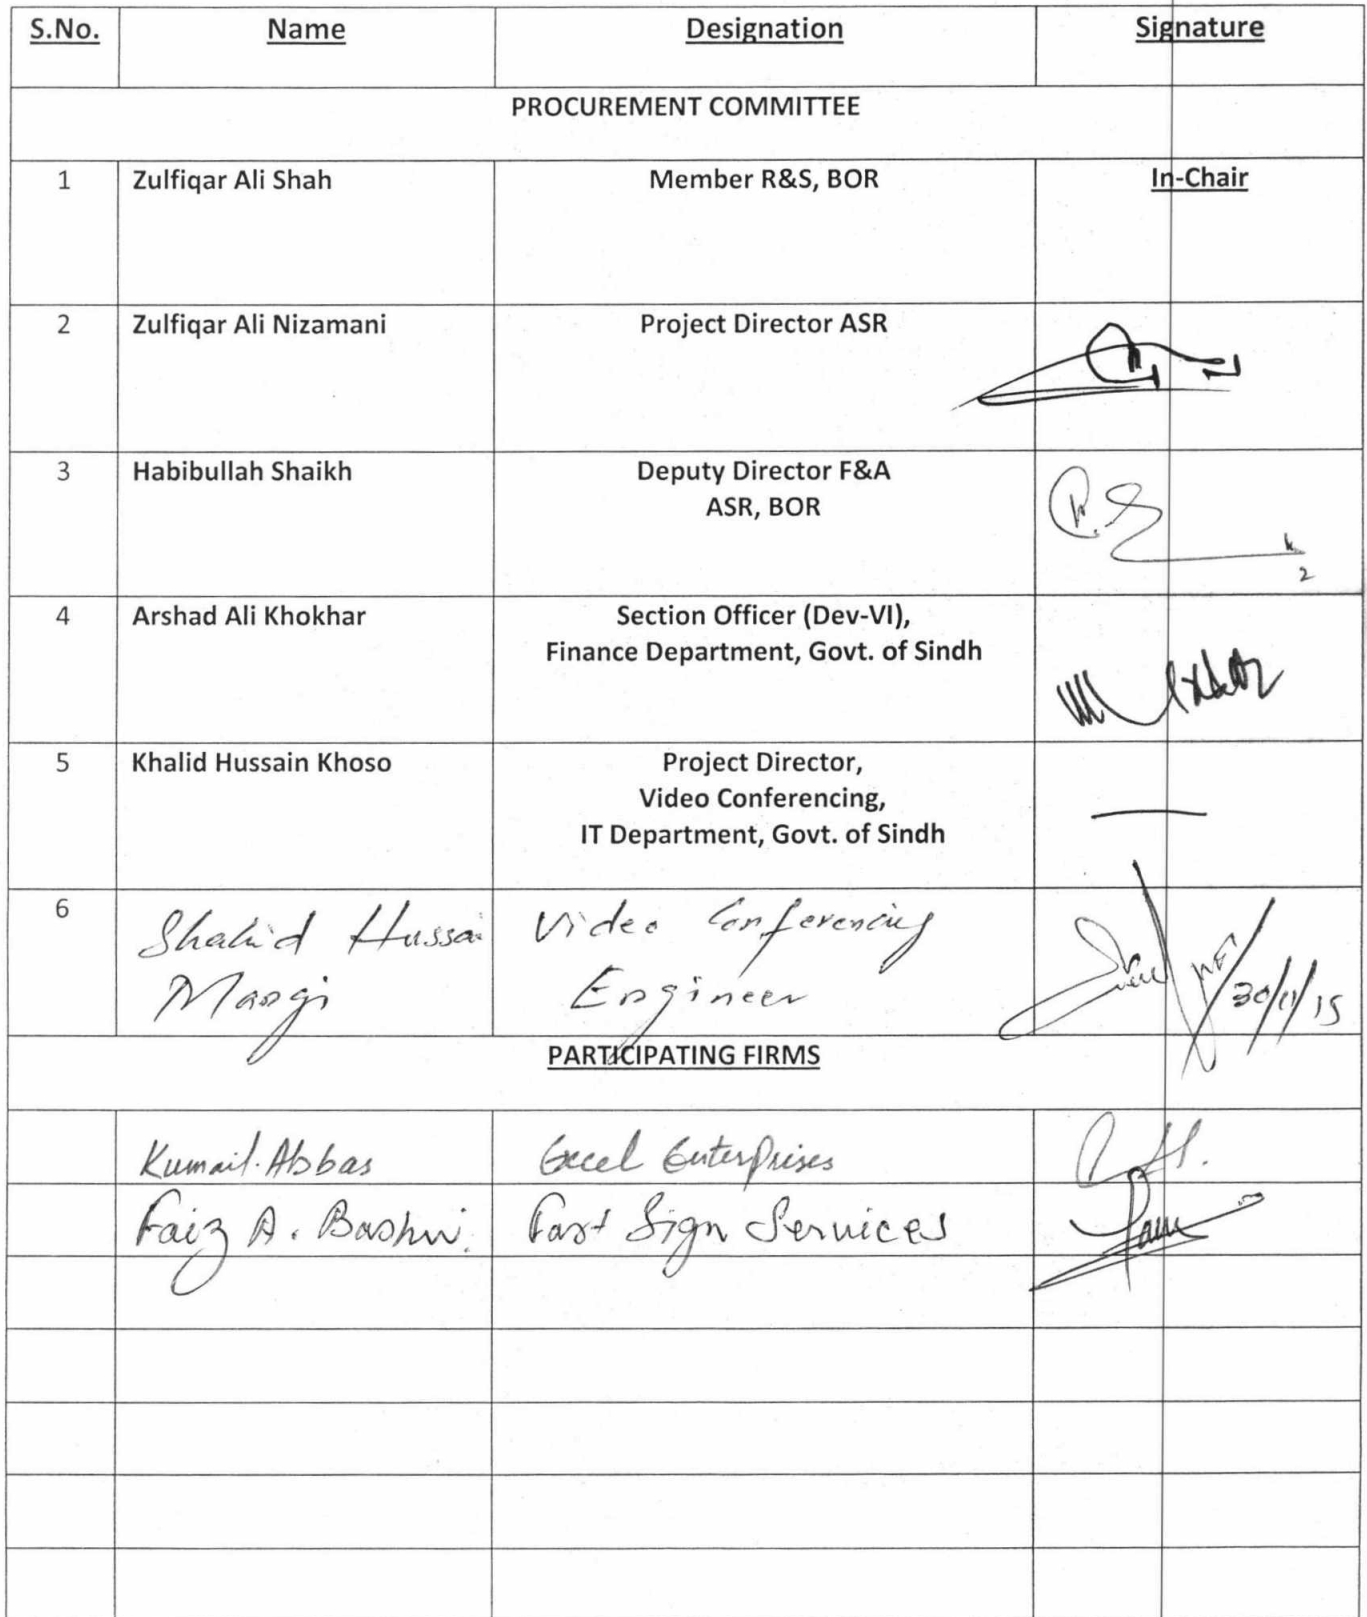 S.No. Name Designation Signature
PROCUREMENT COMMITTEE
1 Zulfiqar Ali Shah Member R&S, BOR In-Chair
2 Zulfiqar Ali Nizamani Project Director ASR
3 Habibullah Shaikh Deputy Director F&A
ASR, BOR
4 Arshad Ali Khokhar Section Officer (Dev-VI),
Finance Department, Govt. of Sindh
5 Khalid Hussain Khoso Project Director,
Video Conferencing,
IT Department, Govt. of Sindh
6 Shahid Hussai Video Conferencing
Mangi Engineer 30/11/15
PARTICIPATING FIRMS
Kumail. Abbas Excel Enterprises
Faiz A. Fast Sign Services